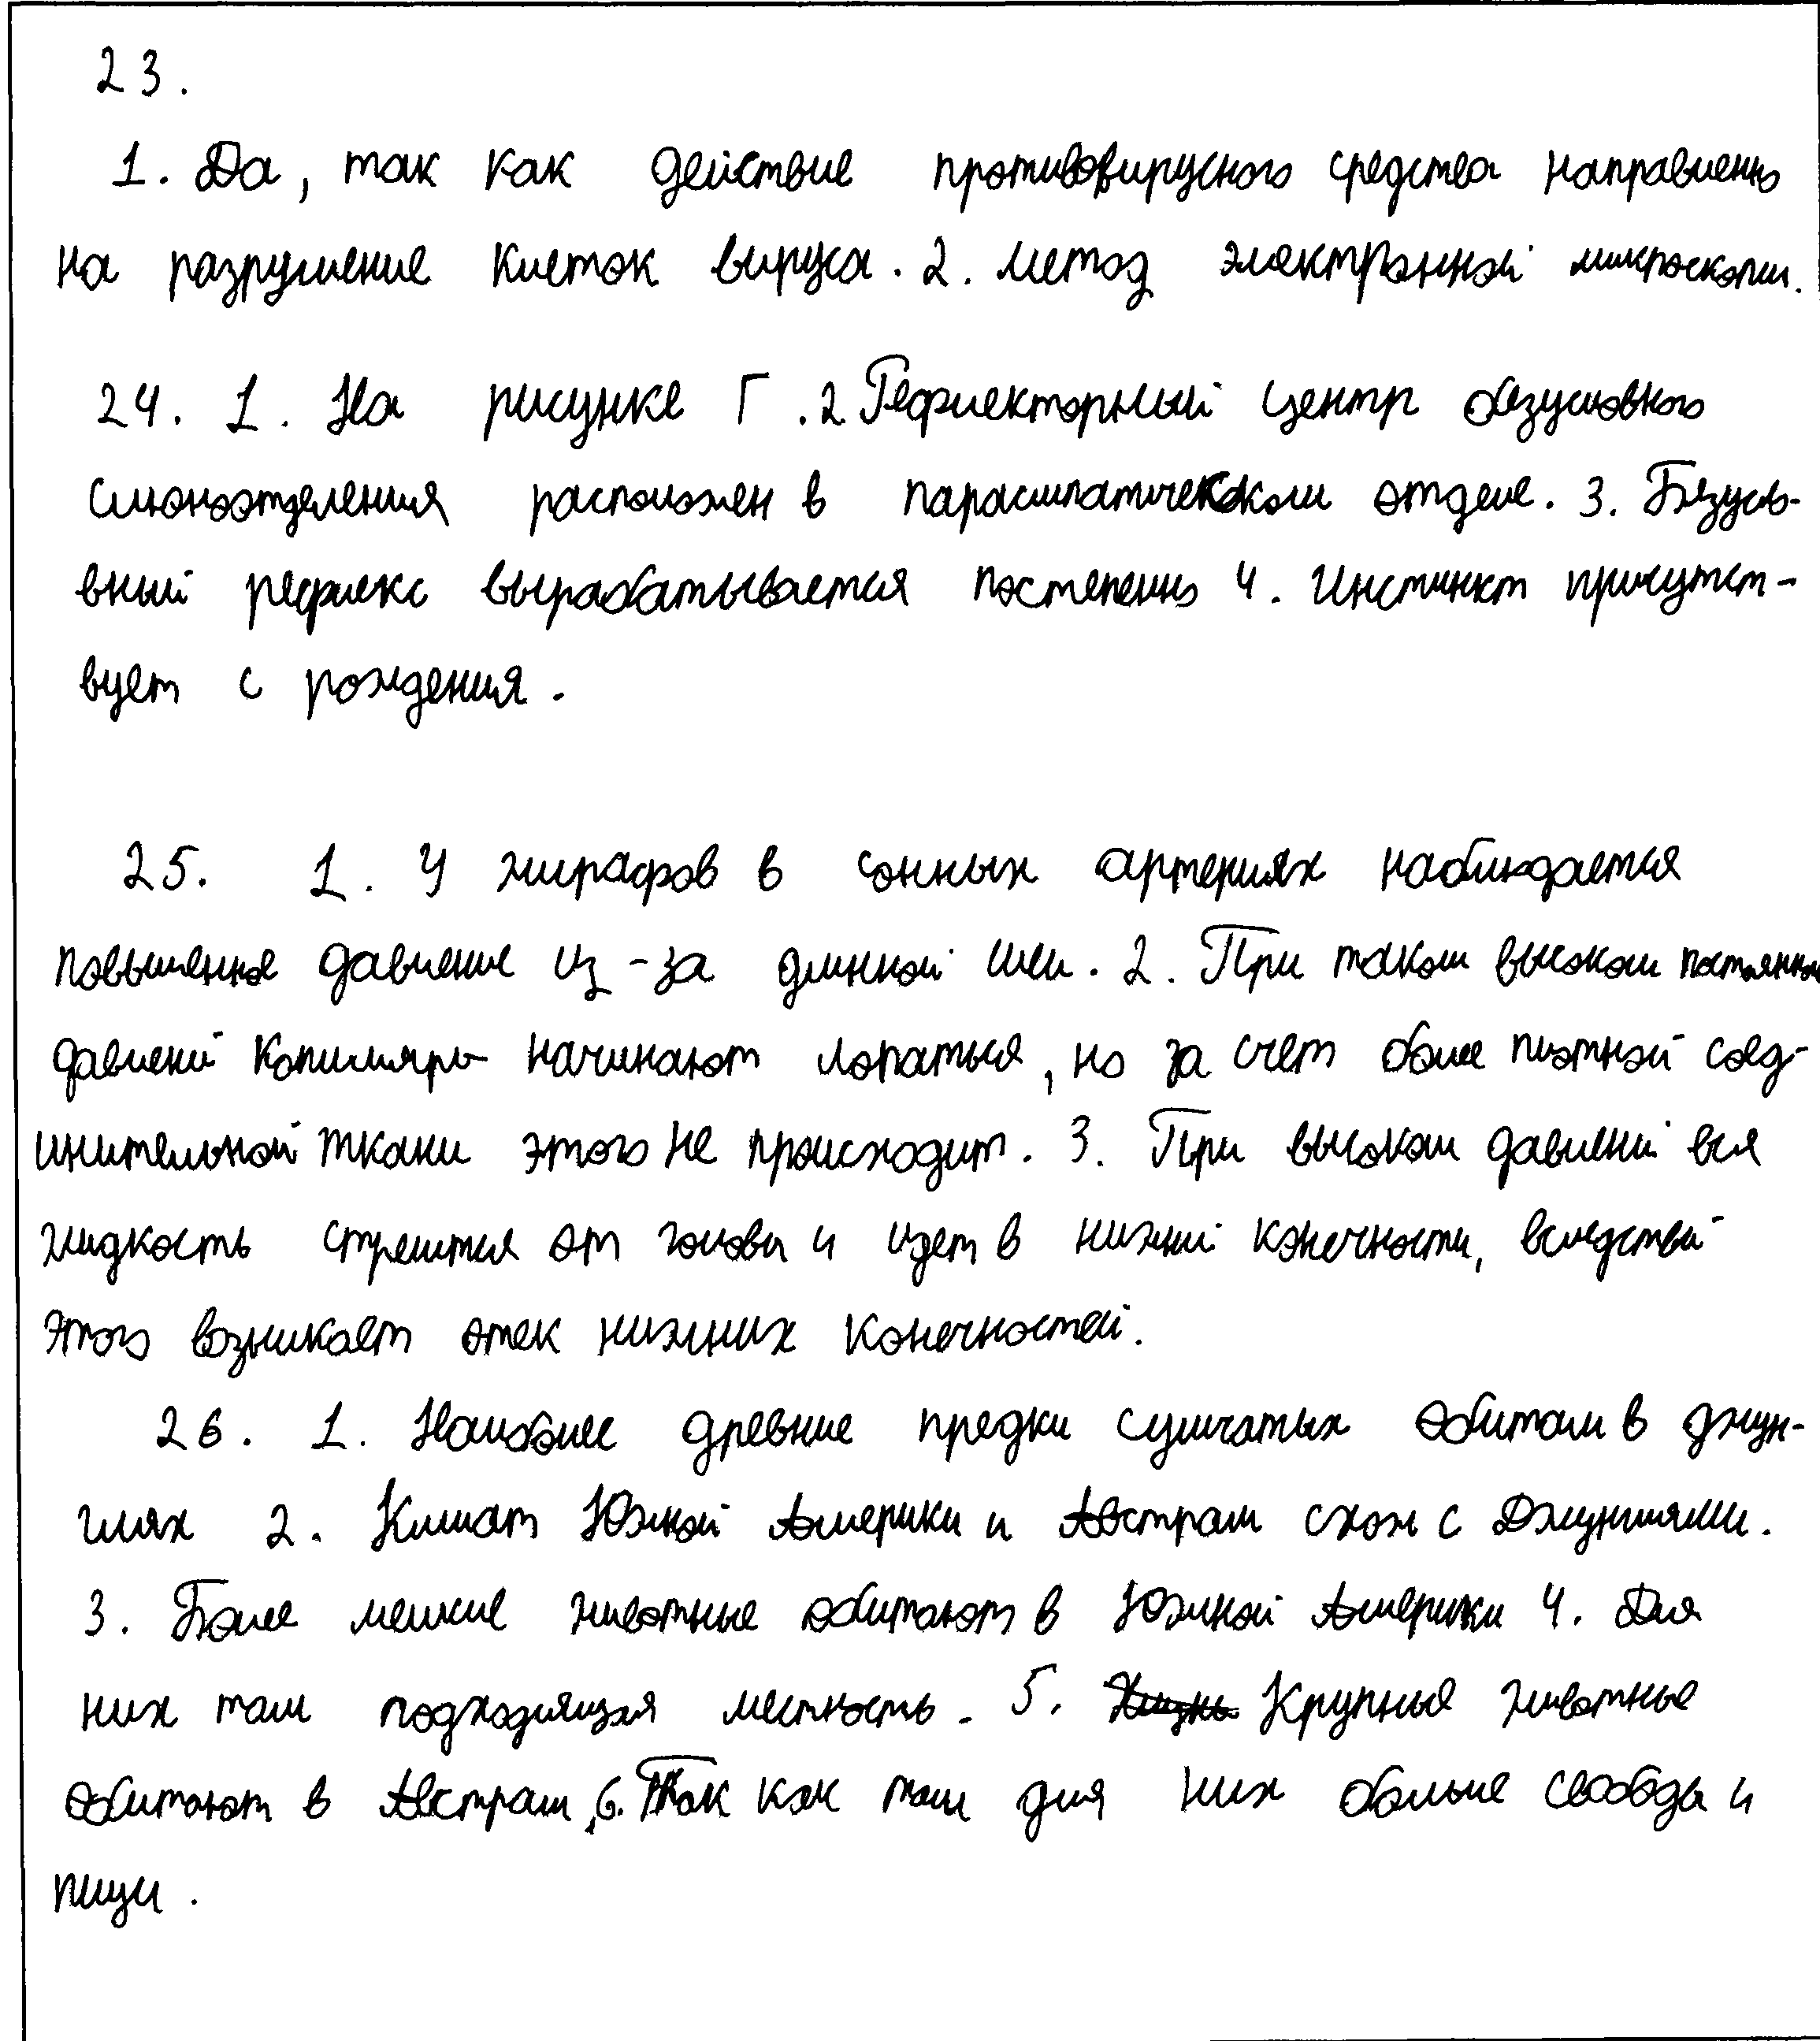 23.
1. Да, так как действие противовирусного средства направленно
на разрушение клеток вируса. 2. Метод электронной микроскопии.
24. 1. На рисунке Г. 2 Рефлекторный центр безусловного
слюноотделения расположен в парасимпатическом отделе. 3. Безусло-
вный рефлекс вырабатывается постепенно 4. Инстинкт присутст-
вует с рождения.
25. 1. У жирафов в сонных артериях наблюдается
повышенное давление из-за длинной шеи. 2. При таком высоком постоянном
давлений капилляры начинают лопаться, но за счет более плотной соед-
инительной ткани этого не происходит. 3. При высоком давлений вся
жидкость стремится от головы и идет в нижний конечности, вследствий
этого возникает отек нижних конечностей.
26. 1. Наиболее древние предки сумчатых обитали в джун-
глях 2. Климат Южной Америки и Австралии схож с Джунглями.
3. Более мелкие животные обитают в Южной Америки 4. Для
них там подходящая местность. 5. Жизнь Крупные животные
обитают в Австралии, 6. Так как там для них больше свободы и
пищи.